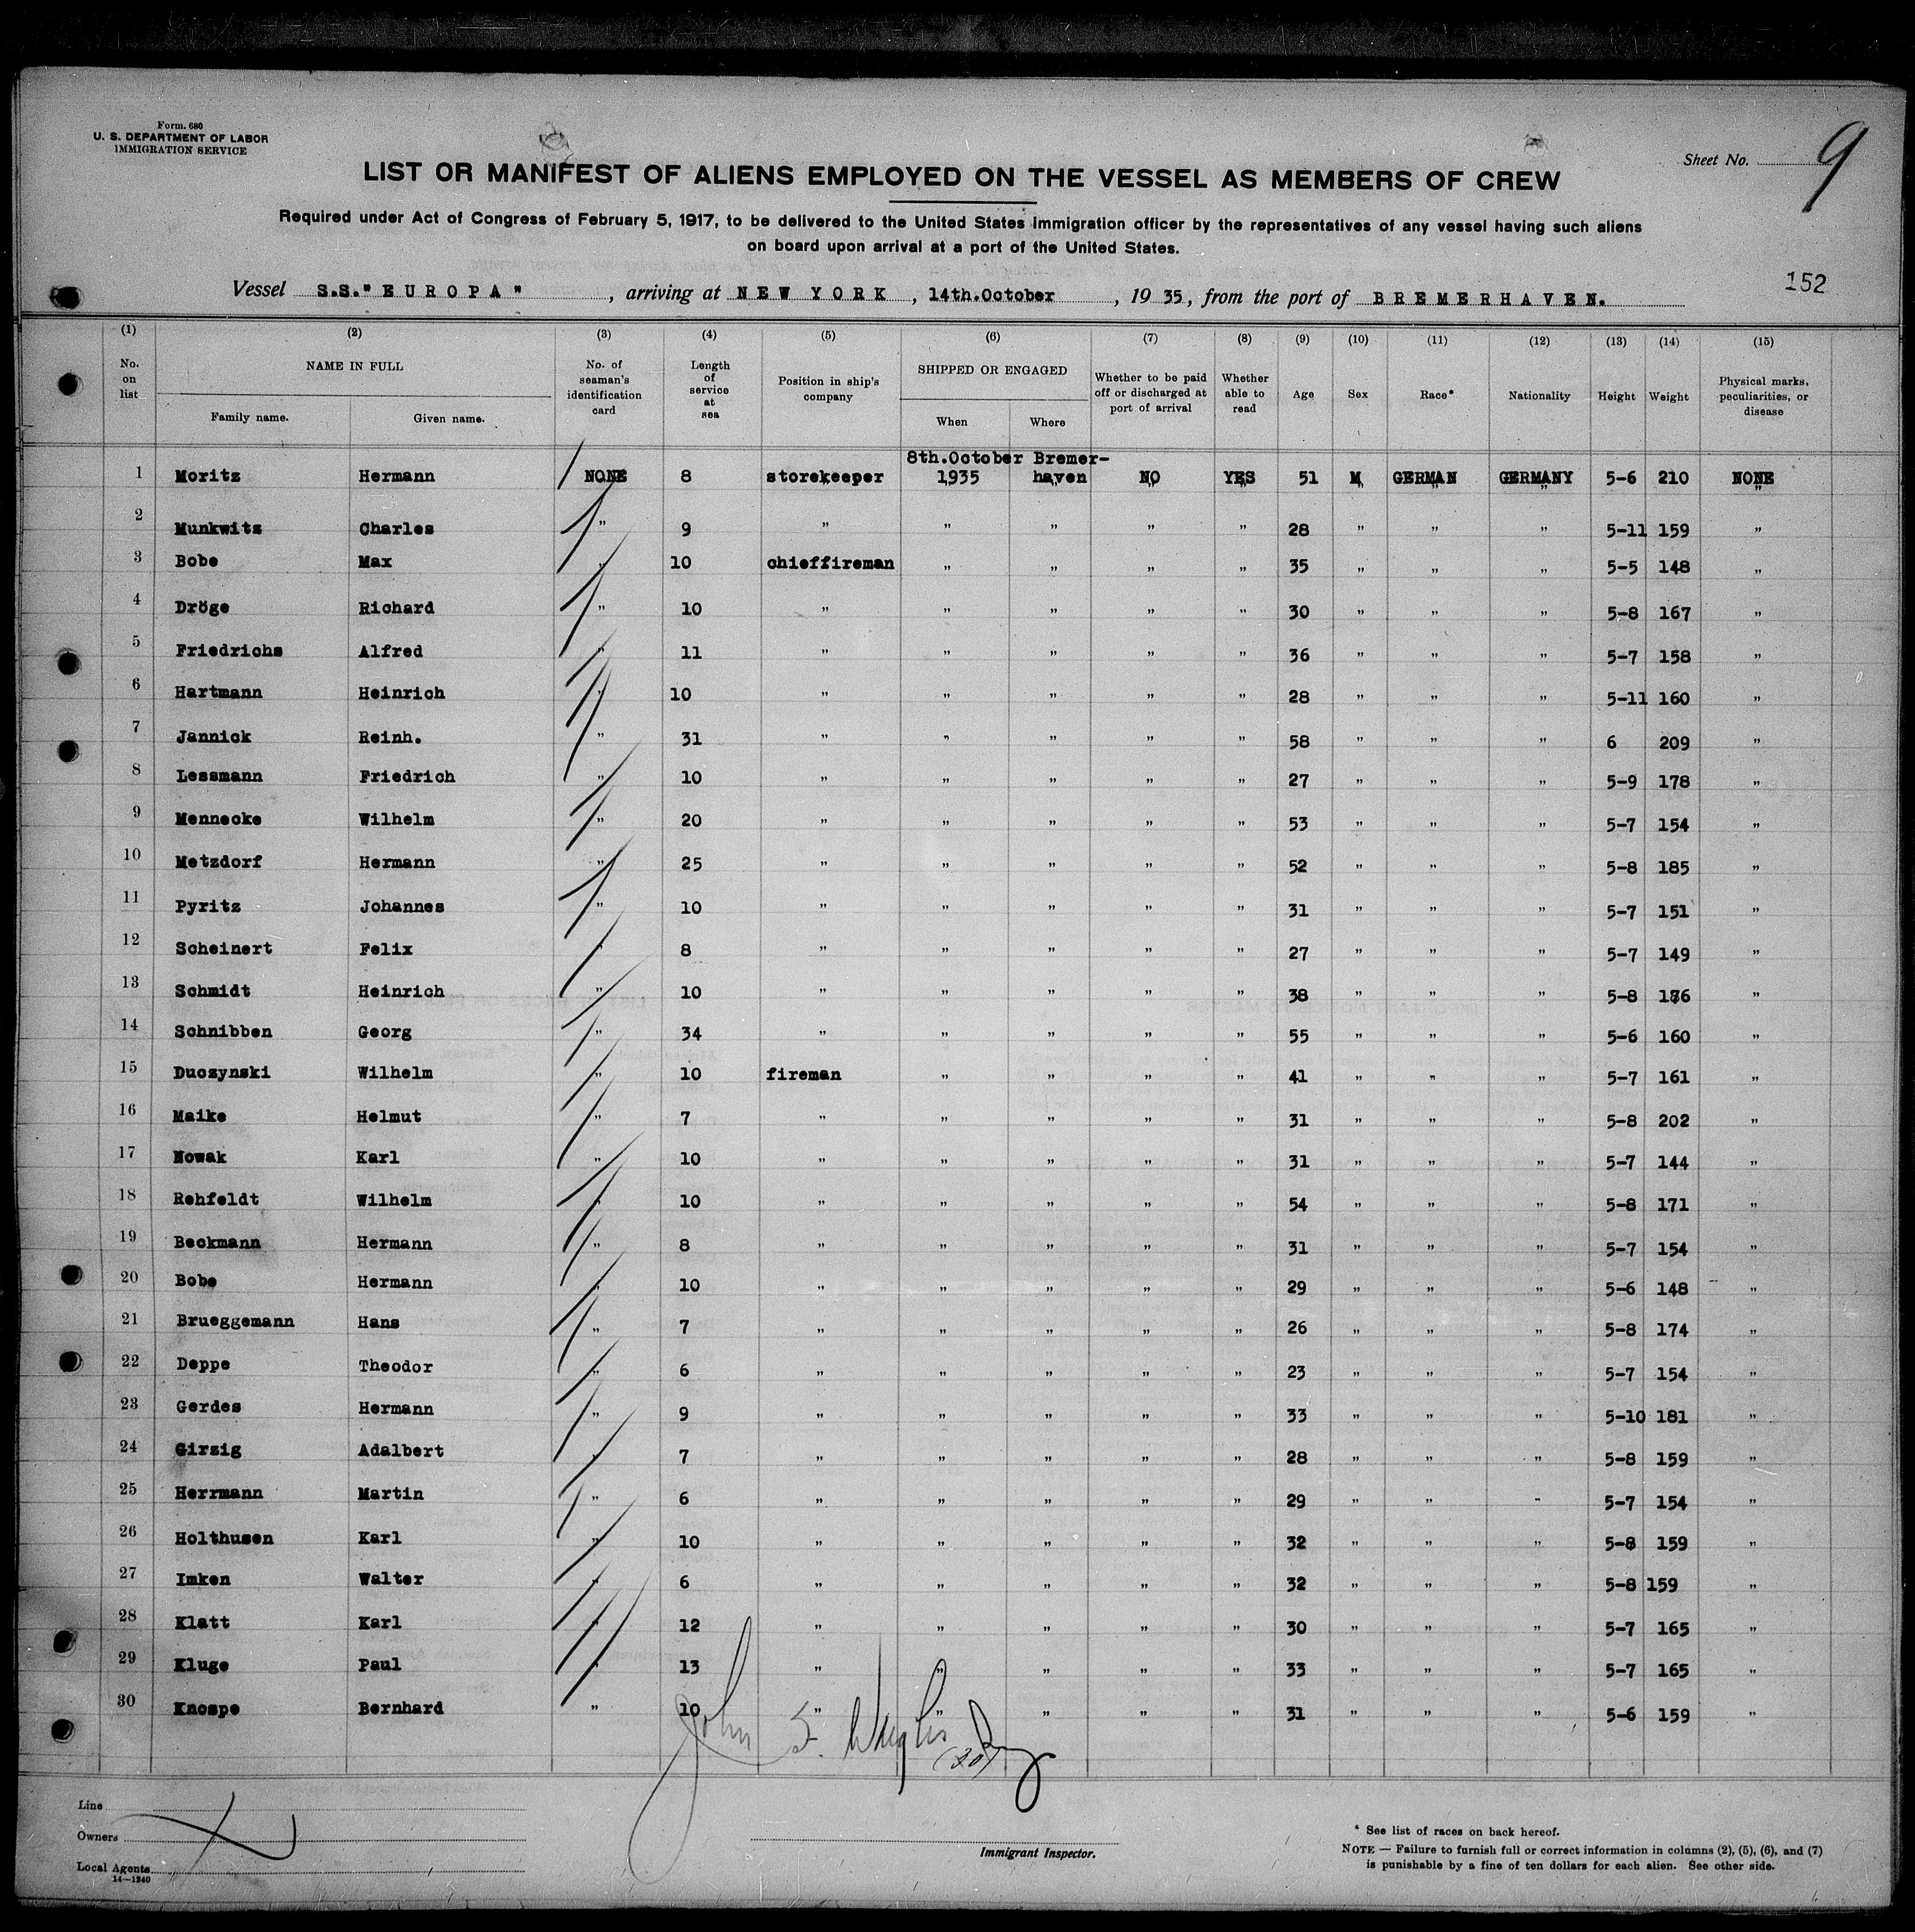 Form. 680
U. S. DEPARTMENT OF LABOR
IMMIGRATION SERVICE
Sheet No. 9
LIST OR MANIFEST OF ALIENS EMPLOYED ON THE VESSEL AS MEMBERS OF CREW
Required under Act of Congress of February 5, 1917, to be delivered to the United States immigration officer by the representatives of any vessel having such aliens
on board upon arrival at a port of the United States.
152
Vessel S.S."EUROPA", arriving at NEW YORK, 14th.October, 1935, from the port of BREMERHAVEN.
(1) (2) (3) (4) (5) (6) (7) (8) (9) (10) (11) (12) (13) (14) (15)
No. on list NAME IN FULL Family name. Given name. No. of seaman's identification card Length of service at sea Position in ship's company SHIPPED OR ENGAGED When Where Whether to be paid off or discharged at port of arrival Whether able to read Age Sex Race* Nationality Height Weight Physical marks, peculiarities, or disease
8th.October Bremer-
1 Moritz Hermann NONE 8 storekeeper 1935 haven NO YES 51 M GERMAN GERMANY 5-6 210 NONE
2 Munkwitz Charles " 9 " " " " " 28 " " " 5-11 159 "
3 Bobe Max " 10 chieffireman " " " " 35 " " " 5-5 148 "
4 Dröge Richard " 10 " " " " " 30 " " " 5-8 167 "
5 Friedrichs Alfred " 11 " " " " " 36 " " " 5-7 158 "
6 Hartmann Heinrich " 10 " " " " " 28 " " " 5-11 160 "
7 Jannick Reinh. " 31 " " " " " 58 " " " 6 209 "
8 Lessmann Friedrich " 10 " " " " " 27 " " " 5-9 178 "
9 Mennecke Wilhelm " 20 " " " " " 53 " " " 5-7 154 "
10 Metzdorf Hermann " 25 " " " " " 52 " " " 5-8 185 "
11 Pyritz Johannes " 10 " " " " " 31 " " " 5-7 151 "
12 Scheinert Felix " 8 " " " " " 27 " " " 5-7 149 "
13 Schmidt Heinrich " 10 " " " " " 38 " " " 5-8 "
14 Schnibben Georg " 34 " " " " " 55 " " " 5-6 160 "
15 Duczynski Wilhelm " 10 fireman " " " " 41 " " " 5-7 161 "
16 Maike Helmut " 7 " " " " " 31 " " " 5-8 202 "
17 Nowak Karl " 10 " " " " " 31 " " " 5-7 144 "
18 Rehfeldt Wilhelm " 10 " " " " " 54 " " " 5-8 171 "
19 Beckmann Hermann " 8 " " " " " 31 " " " 5-7 154 "
20 Bobe Hermann " 10 " " " " " 29 " " " 5-6 148 "
21 Brueggemann Hans " 7 " " " " " 26 " " " 5-8 174 "
22 Deppe Theodor " 6 " " " " " 23 " " " 5-7 154 "
23 Gerdes Hermann " 9 " " " " " 33 " " " 5-10 181 "
24 Girzig Adalbert " 7 " " " " " 28 " " " 5-8 159 "
25 Herrmann Martin " 6 " " " " " 29 " " " 5-7 154 "
26 Holthusen Karl " 10 " " " " " 32 " " " 5-8 159 "
27 Imken Walter " 6 " " " " " 32 " " " 5-8 159 "
28 Klatt Karl " 12 " " " " " 30 " " " 5-7 165 "
29 Kluge Paul " 13 " " " " " 33 " " " 5-7 165 "
30 Knospe Bernhard " 10 " " " " " 31 " " " 5-6 159 "
John S.
(30)
Line
Owners
Local Agents
14—1240
Immigrant Inspector.
* See list of races on back hereof.
NOTE — Failure to furnish full or correct information in columns (2), (5), (6), and (7)
is punishable by a fine of ten dollars for each alien. See other side.